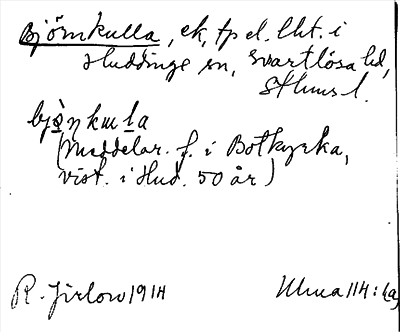 Björnkulla, ek, tp el. lht. i
Huddinge sn, Svartlösa hd,
Sthms l.
bjö̀ṇkuḷa
(Meddelar. f. i Botkyrka,
vist. i Hud. 50 år)
R. Jirlow 1914
Ulma 114: